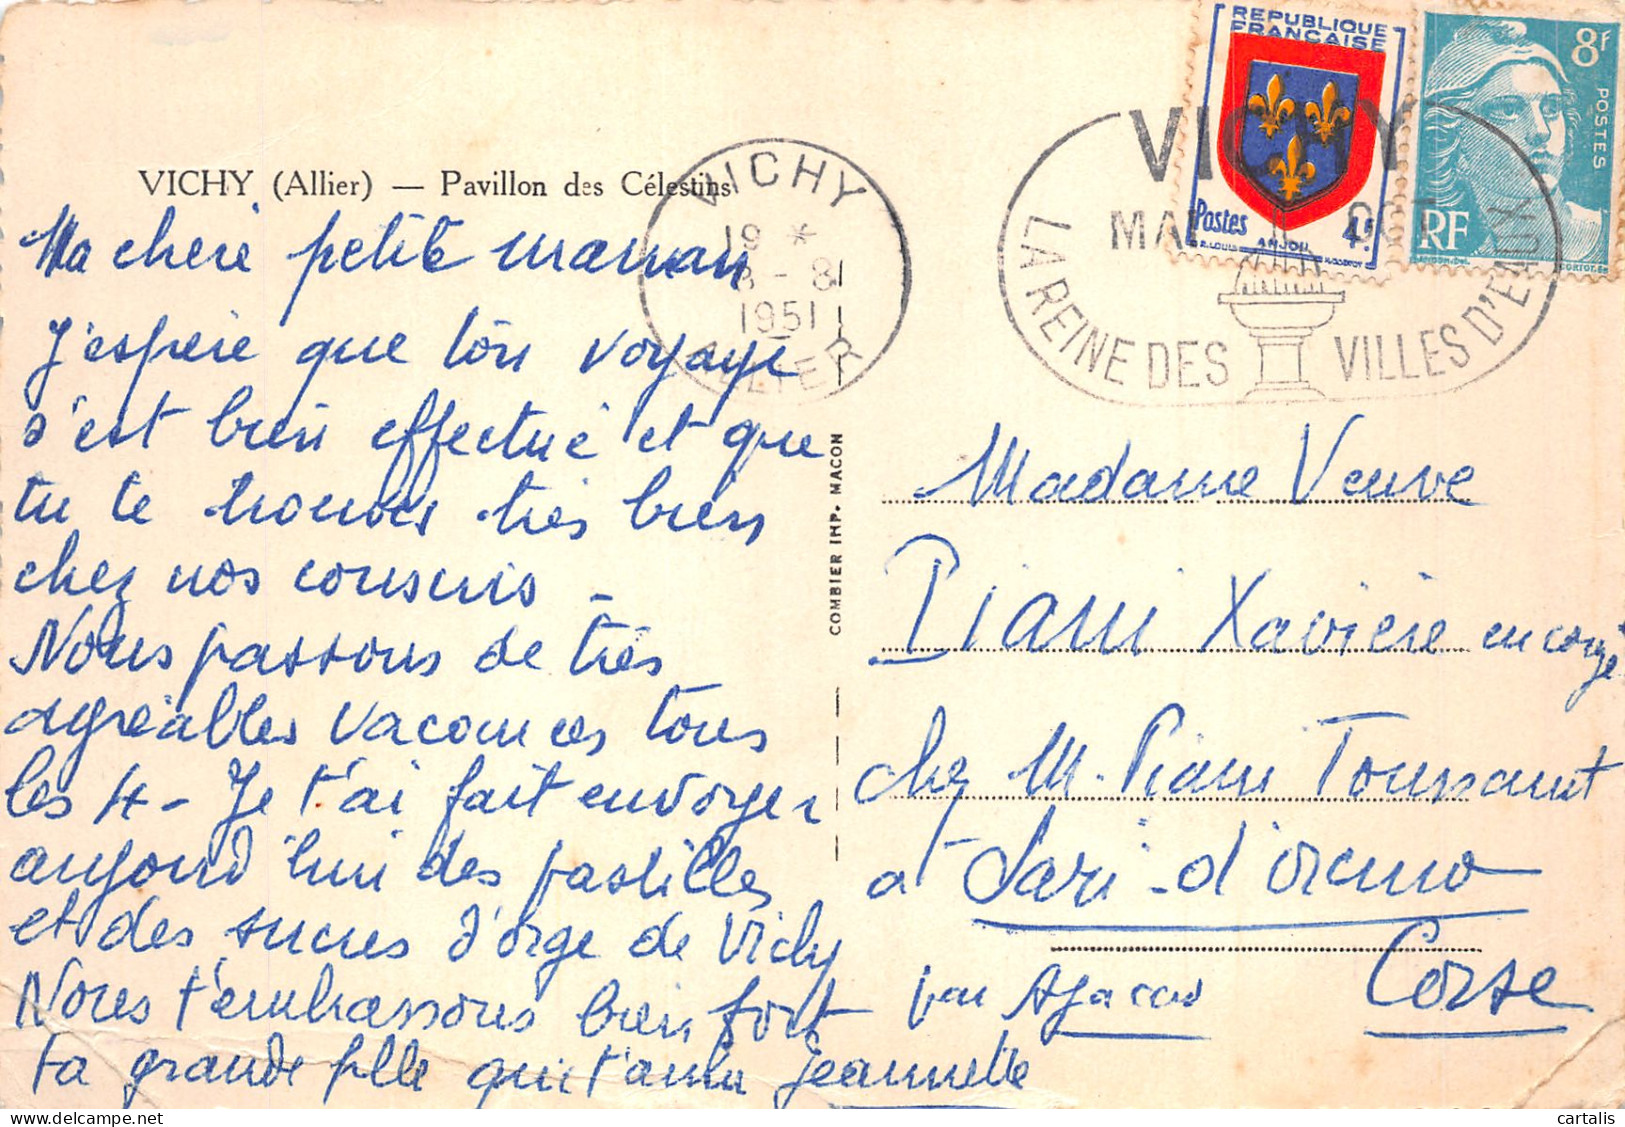 VICHY (Allier) — Pavillon des Célestins
Ma chère petite maman
J'espère que ton voyage
s'est bien effectué et que
tu te trouves très bien
chez nos cousins –
Nous passons de très
agréables vacances tous
les 4 – Je t'ai fait envoyer
aujourd'hui des pastilles
et des sucres d'orge de Vichy
Nous t'embrassons bien fort
ta grande fille qui t'aime Jeannette
VICHY
19 *
8 - 8
1951
ALLIER
VICHY
MAI OCT
LA REINE DES VILLES D'EAUX
REPUBLIQUE
FRANÇAISE
Postes 4F
ANJOU
8F
POSTES
RF
COMBIER IMP. MACON
Madame Veuve
Piani Xavière en congé
chez M. Piani Toussaint
à Sari-d'orcino
par Ajaccio Corse
cartalis